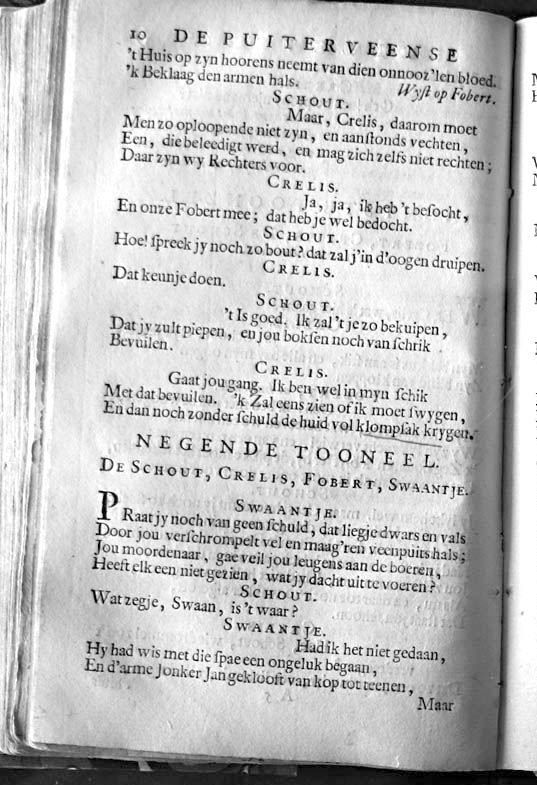 10 DE PUITERVEENSE
't Huis op zyn hoorens neemt van dien onnooz'len bloed.
'k Beklaag den armen hals. Wyst op Fobert.
SCHOUT.
Maar, Crelis, daarom moet
Men zo oploopende niet zyn, en aanstonds vechten,
Een, die beleedigt werd, en mag zich zelfs niet rechten;
Daar zyn wy Rechters voor.
CRELIS.
Ja, ja, ik heb 't besocht,
En onze Fobert mee; dat heb je wel bedocht.
SCHOUT.
Hoe! spreek jy noch zo bout? dat zal j'in d'oogen druipen.
CRELIS.
Dat keunje doen.
SCHOUT.
't Is goed. Ik zal 't je zo bekuipen,
Dat jy zult piepen, en jou boksen noch van schrik
Bevuilen.
CRELIS.
Gaat jou gang. Ik ben wel in myn schik
Met dat bevuilen. 'k Zal eens zien of ik moet swygen,
En dan noch zonder schuld de huid vol klompsak krygen.
NEGENDE TOONEEL.
DE SCHOUT, CRELIS, FOBERT, SWAANTJE.
SWAANTJE.
PRaat jy noch van geen schuld, dat liegje dwars en vals
Door jou verschrompelt vel en maag'ren veenpuits hals;
Jou moordenaar, gae veil jou leugens aan de boeren,
Heeft elk een niet gezien, wat jy dacht uit te voeren?
SCHOUT.
Wat zegje, Swaan, is 't waar?
SWAANTJE.
Had ik het niet gedaan,
Hy had wis met die spae een ongeluk begaan,
En d'arme Jonker Jan geklooft van kop tot teenen,
Maar